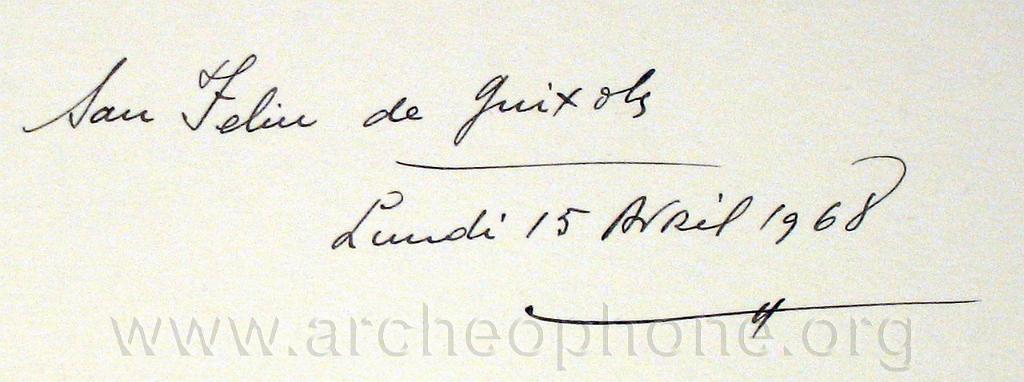 San Feliu de Guixols
Lundi 15 Avril 1968
www.archeophone.org